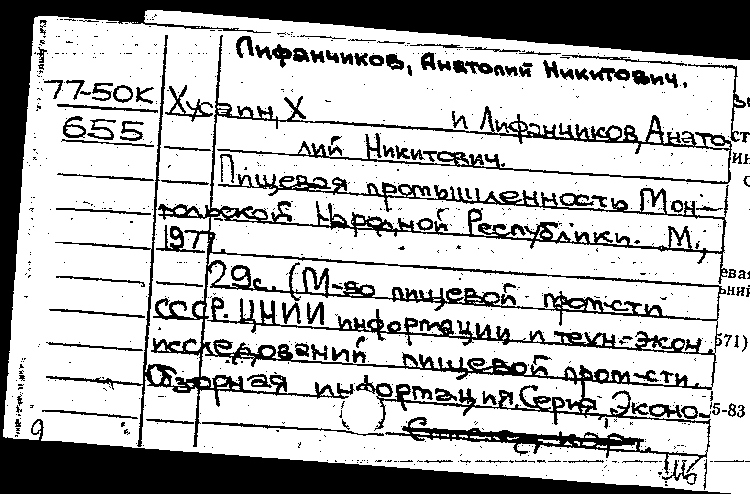 Лифанчиков, Анатолий Никитович.
77-50К
655
Хусаин, Х и Лифанчиков, Анато-
лий Никитович.
Пищевая промышленность Мон-
гольской Народной Республики. М.,
1977.
29с. (М-во пищевой пром-сти
СССР. ЦНИИ информации и техн.-экон.
исследований пищевой пром-сти.
Обзорная информация. Серия, Эконо-
9
ст
ин
с
евая
ьний
571)
5-83